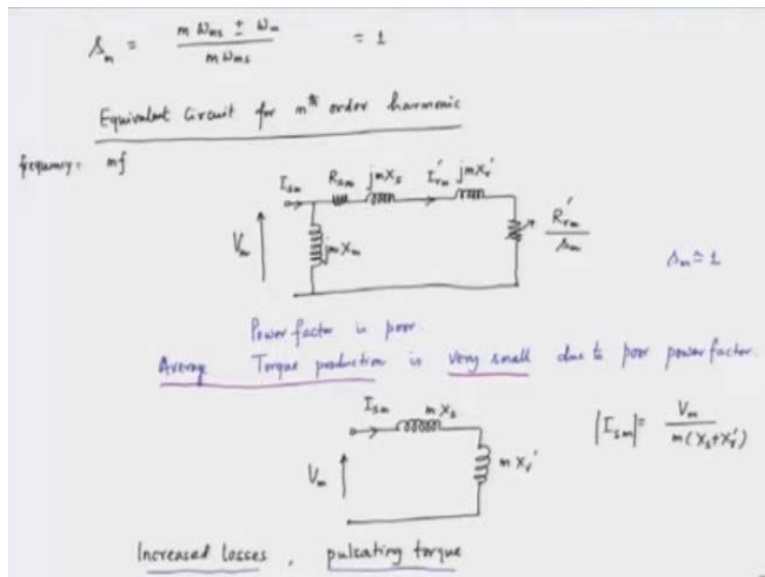 s_m = m ω_ms ± ω_m / m ω_ms ≈ 1
Equivalent Circuit for mth order harmonic
frequency: mf
I_sm R_sm jmX_s I'_rm jmX_r'
V_m jmX_m R'_rm / s_m
s_m ≃ 1
Power factor is poor.
Average Torque production is very small due to poor power factor.
I_sm mX_s
V_m mX_r'
|I_sm| = V_m / m(X_s+X_r')
Increased Losses, pulsating torque